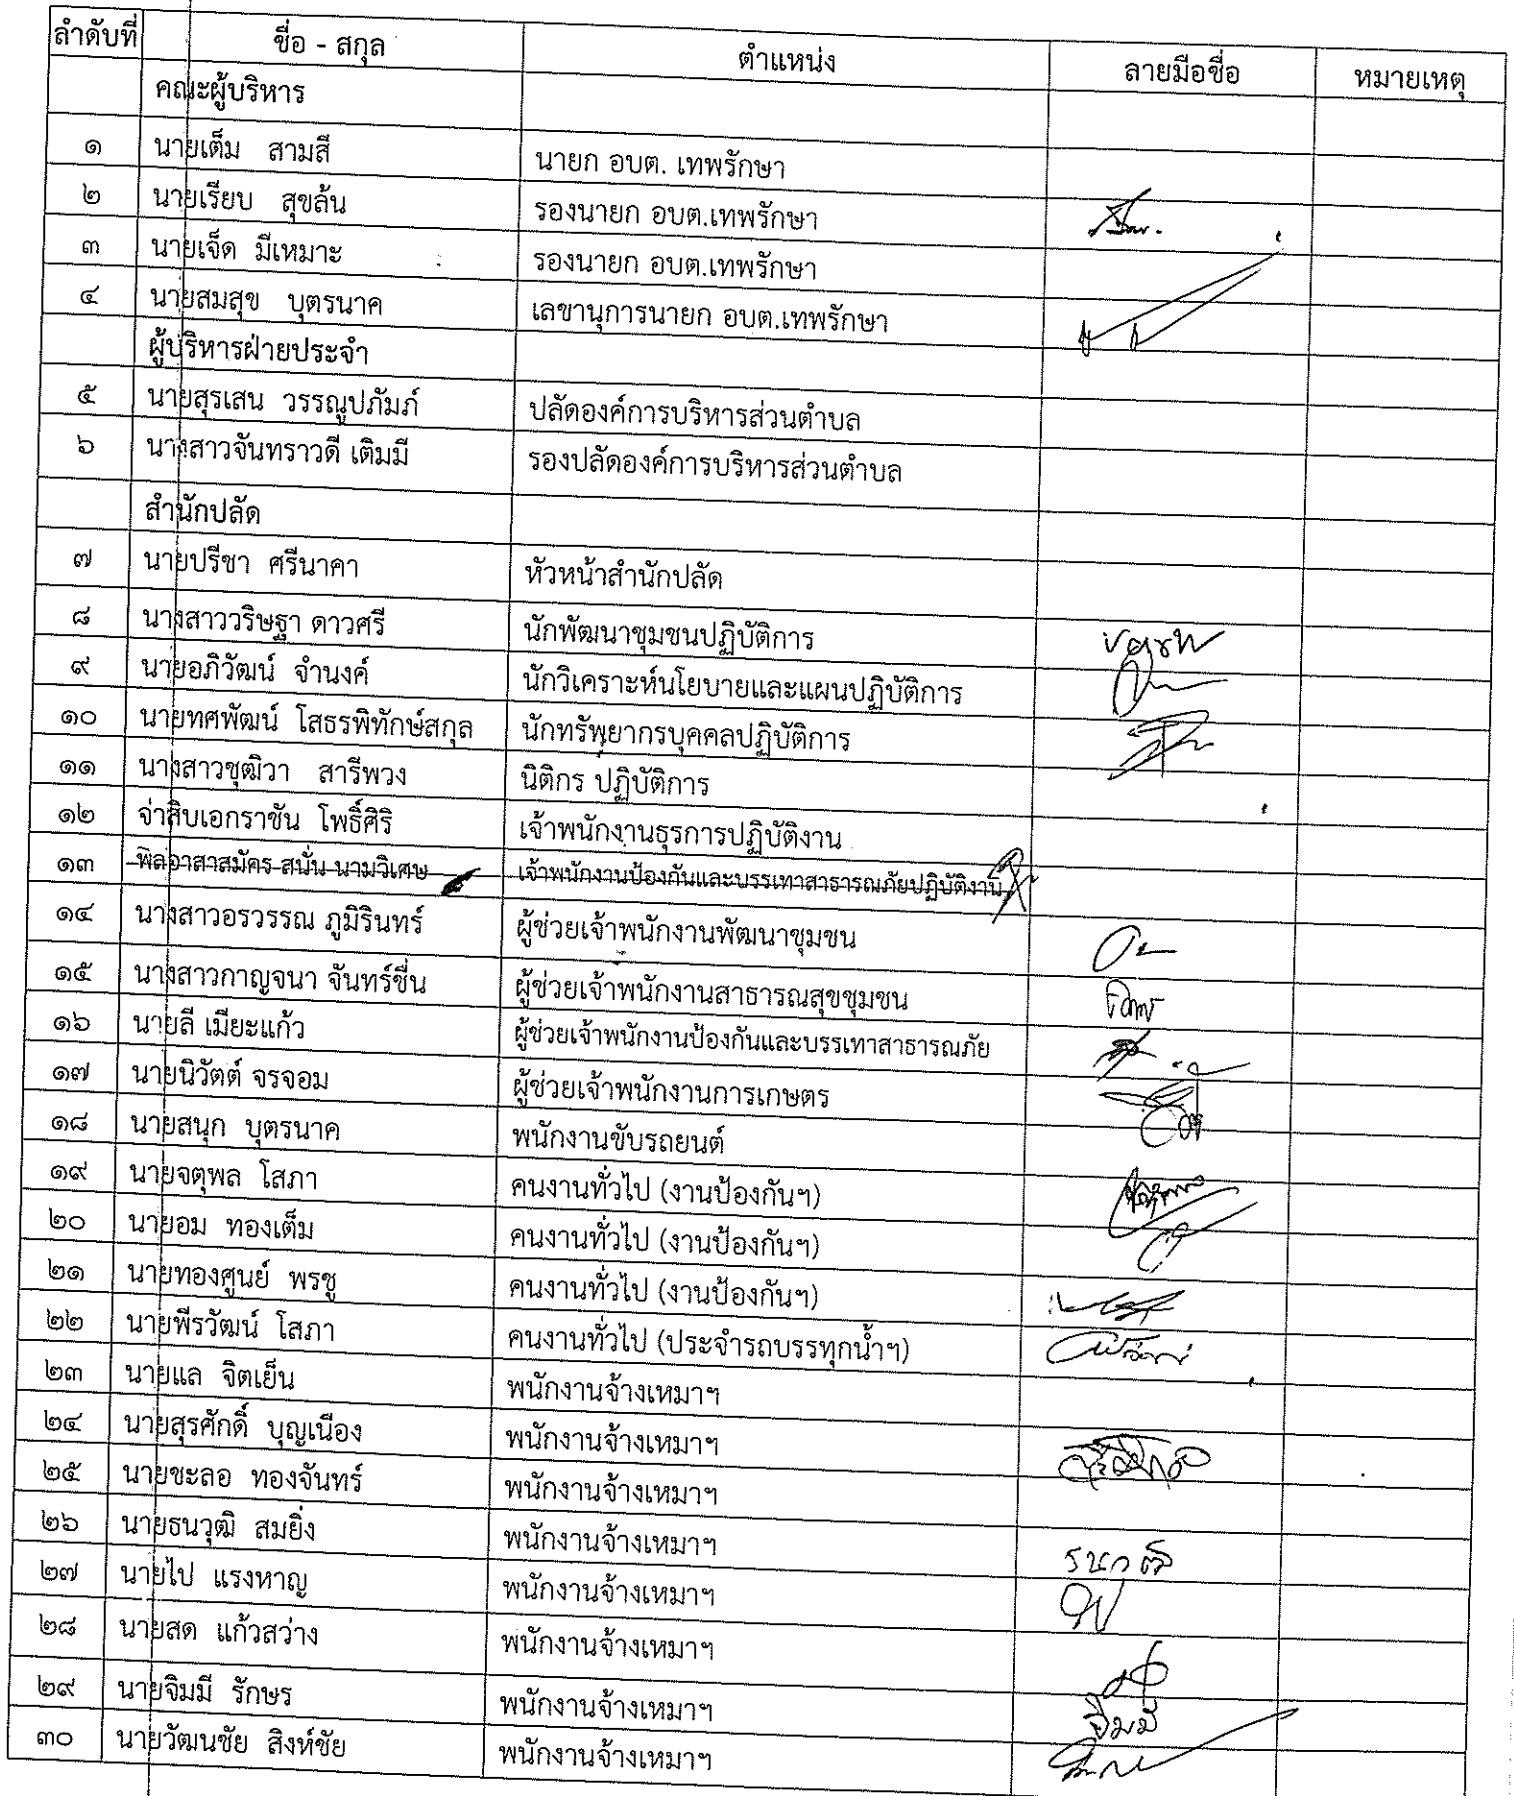 ลำดับที่ ชื่อ - สกุล ตำแหน่ง ลายมือชื่อ หมายเหตุ
คณะผู้บริหาร
๑ นายเต็ม สามสี นายก อบต. เทพรักษา
๒ นายเรียบ สุขล้น รองนายก อบต.เทพรักษา
๓ นายเจ็ด มีเหมาะ รองนายก อบต.เทพรักษา
๔ นายสมสุข บุตรนาค เลขานุการนายก อบต.เทพรักษา
ผู้บริหารฝ่ายประจำ
๕ นายสุรเสน วรรณูปภัมภ์ ปลัดองค์การบริหารส่วนตำบล
๖ นางสาวจันทราวดี เติมมี รองปลัดองค์การบริหารส่วนตำบล
สำนักปลัด
๗ นายปรีชา ศรีนาคา หัวหน้าสำนักปลัด
๘ นางสาววริษฐา ดาวศรี นักพัฒนาชุมชนปฏิบัติการ
๙ นายอภิวัฒน์ จำนงค์ นักวิเคราะห์นโยบายและแผนปฏิบัติการ
๑๐ นายทศพัฒน์ โสธรพิทักษ์สกุล นักทรัพยากรบุคคลปฏิบัติการ
๑๑ นางสาวชุฒิวา สารีพวง นิติกร ปฏิบัติการ
๑๒ จ่าสิบเอกราชัน โพธิ์ศิริ เจ้าพนักงานธุรการปฏิบัติงาน
๑๓ พลอาสาสมัคร สนั่น นามวิเศษ เจ้าพนักงานป้องกันและบรรเทาสาธารณภัยปฏิบัติงาน
๑๔ นางสาวอรวรรณ ภูมิรินทร์ ผู้ช่วยเจ้าพนักงานพัฒนาชุมชน
๑๕ นางสาวกาญจนา จันทร์ชื่น ผู้ช่วยเจ้าพนักงานสาธารณสุขชุมชน
๑๖ นายลี เมียะแก้ว ผู้ช่วยเจ้าพนักงานป้องกันและบรรเทาสาธารณภัย
๑๗ นายนิวัตต์ จรจอม ผู้ช่วยเจ้าพนักงานการเกษตร
๑๘ นายสนุก บุตรนาค พนักงานขับรถยนต์
๑๙ นายจตุพล โสภา คนงานทั่วไป (งานป้องกันฯ)
๒๐ นายอม ทองเต็ม คนงานทั่วไป (งานป้องกันฯ)
๒๑ นายทองศูนย์ พรชู คนงานทั่วไป (งานป้องกันฯ)
๒๒ นายพีรวัฒน์ โสภา คนงานทั่วไป (ประจำรถบรรทุกน้ำฯ)
๒๓ นายแล จิตเย็น พนักงานจ้างเหมาฯ
๒๔ นายสุรศักดิ์ บุญเนือง พนักงานจ้างเหมาฯ
๒๕ นายชะลอ ทองจันทร์ พนักงานจ้างเหมาฯ
๒๖ นายธนวุฒิ สมยิ่ง พนักงานจ้างเหมาฯ
๒๗ นายไป แรงหาญ พนักงานจ้างเหมาฯ
๒๘ นายสด แก้วสว่าง พนักงานจ้างเหมาฯ
๒๙ นายจิมมี รักษร พนักงานจ้างเหมาฯ จิมมี
๓๐ นายวัฒนชัย สิงห์ชัย พนักงานจ้างเหมาฯ